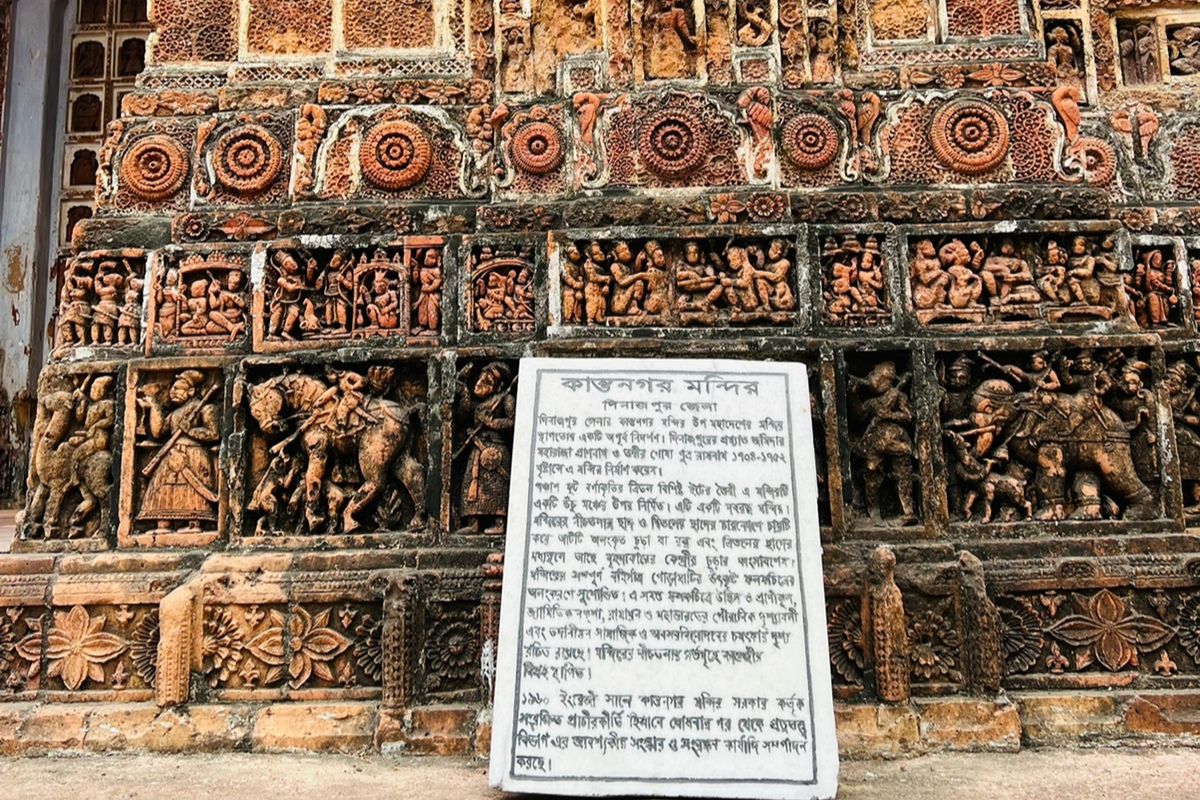 কান্তনগর মন্দির
দিনাজপুর জেলা
দিনাজপুর জেলার কান্তনগর মন্দির উপ মহাদেশের মন্দির
স্থাপত্যের একটি অপূর্ব নিদর্শন। দিনাজপুরের প্রখ্যাত জমিদার
মহারাজা প্রাণনাথ ও তদীয় পোষ্য পুত্র রামনাথ ১৭০৪-১৭৫২
খৃষ্টাব্দে এ মন্দির নির্মাণ করেন।
পঞ্চাশ ফুট বর্গাকৃতির ত্রিতল বিশিষ্ট ইটের তৈরী এ মন্দিরটি
একটি উঁচু মঞ্চের উপর নির্মিত। এটি একটি নবরত্ন মন্দির।
মন্দিরের নীচতলার ছাদ ও দ্বিতলের ছাদের চারকোণে চারটি
করে আটটি অলংকৃত চূড়া বা রত্ন এবং ত্রিতলের ছাদের
মধ্যস্থলে আছে বৃহদাকারের কেন্দ্রীয় চূড়ার ধ্বংসাবশেষ।
মন্দিরের সম্পূর্ণ বহির্গাত্র পোড়ামাটির উৎকৃষ্ট ফলকচিত্রের
অলংকরণে সুশোভিত। এ সমস্ত ফলকচিত্রে উদ্ভিদ ও প্রাণীকুল,
জ্যামিতিক নকশা, রামায়ণ ও মহাভারতের পৌরাণিক দৃশ্যাবলী
এবং তদানীন্তন সামাজিক ও অবসরবিনোদনের চমৎকার দৃশ্য
রচিত রয়েছে। মন্দিরের নীচতলার গর্ভগৃহে কান্তজীর
বিগ্রহ স্থাপিত।
১৯৬০ ইংরেজী সালে কান্তনগর মন্দির সরকার কর্তৃক
সংরক্ষিত প্রাচীনকীর্তি হিসাবে ঘোষনার পর থেকে প্রত্নতত্ত্ব
বিভাগ এর আবশ্যকীয় সংস্কার ও সংরক্ষণ কার্যাদি সম্পাদন
করছে।